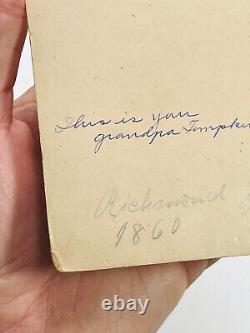 This is you
grandpa Tompki
Richmond
1860
ebay